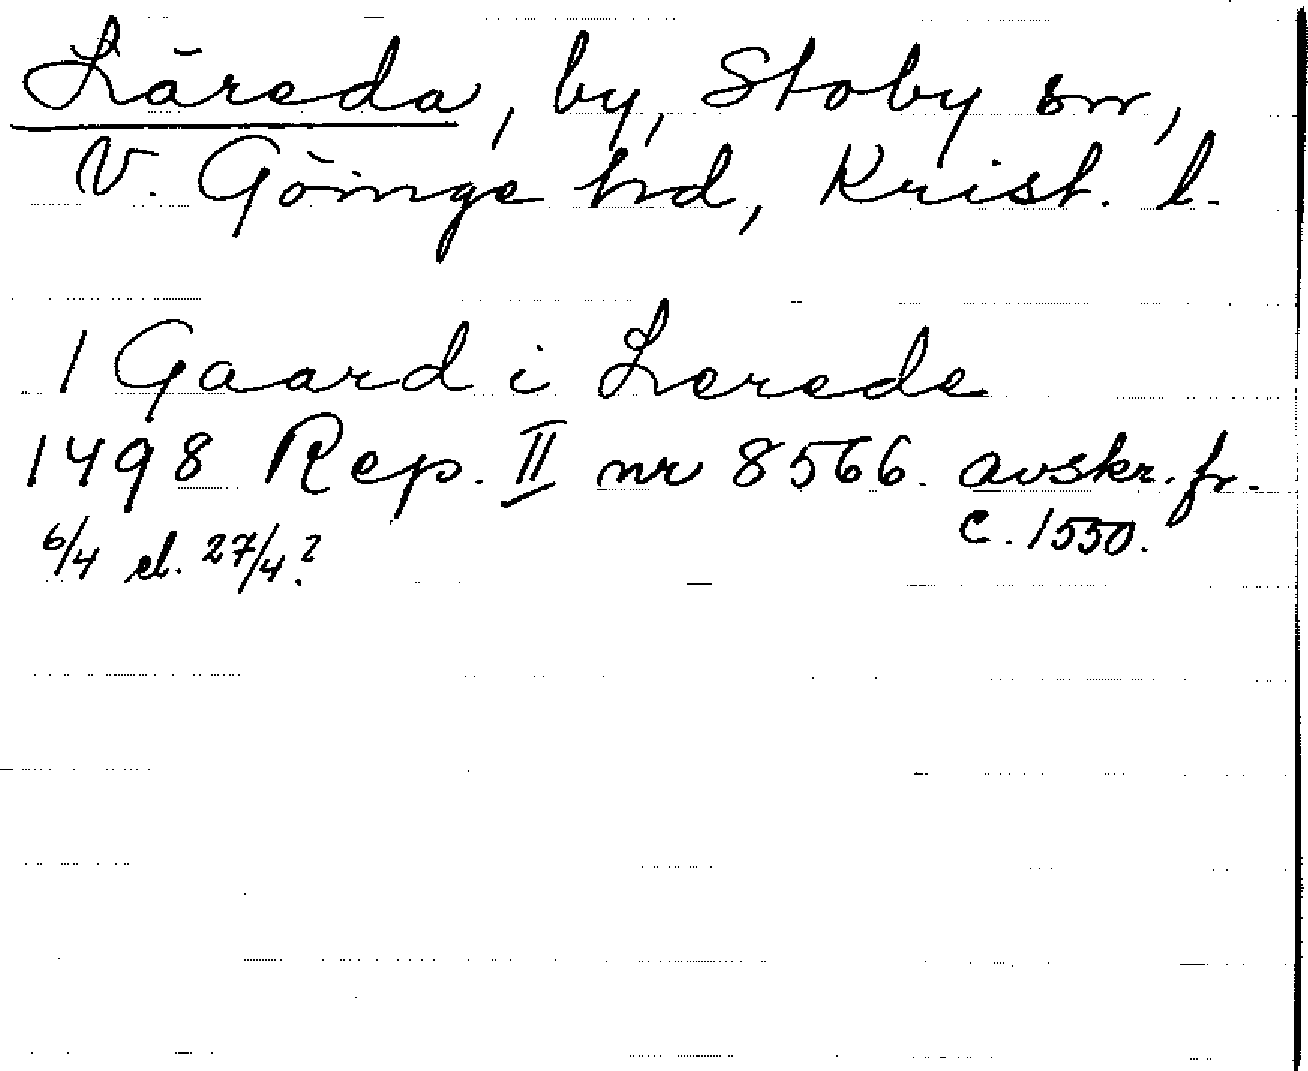 Läreda, by, Stoby sn,
V. Göinge hd, Krist. l.
1 Gaard i Lerede
1498 Rep. II nr 8566. avskr. fr.
6/4 el. 27/4? c. 1550.